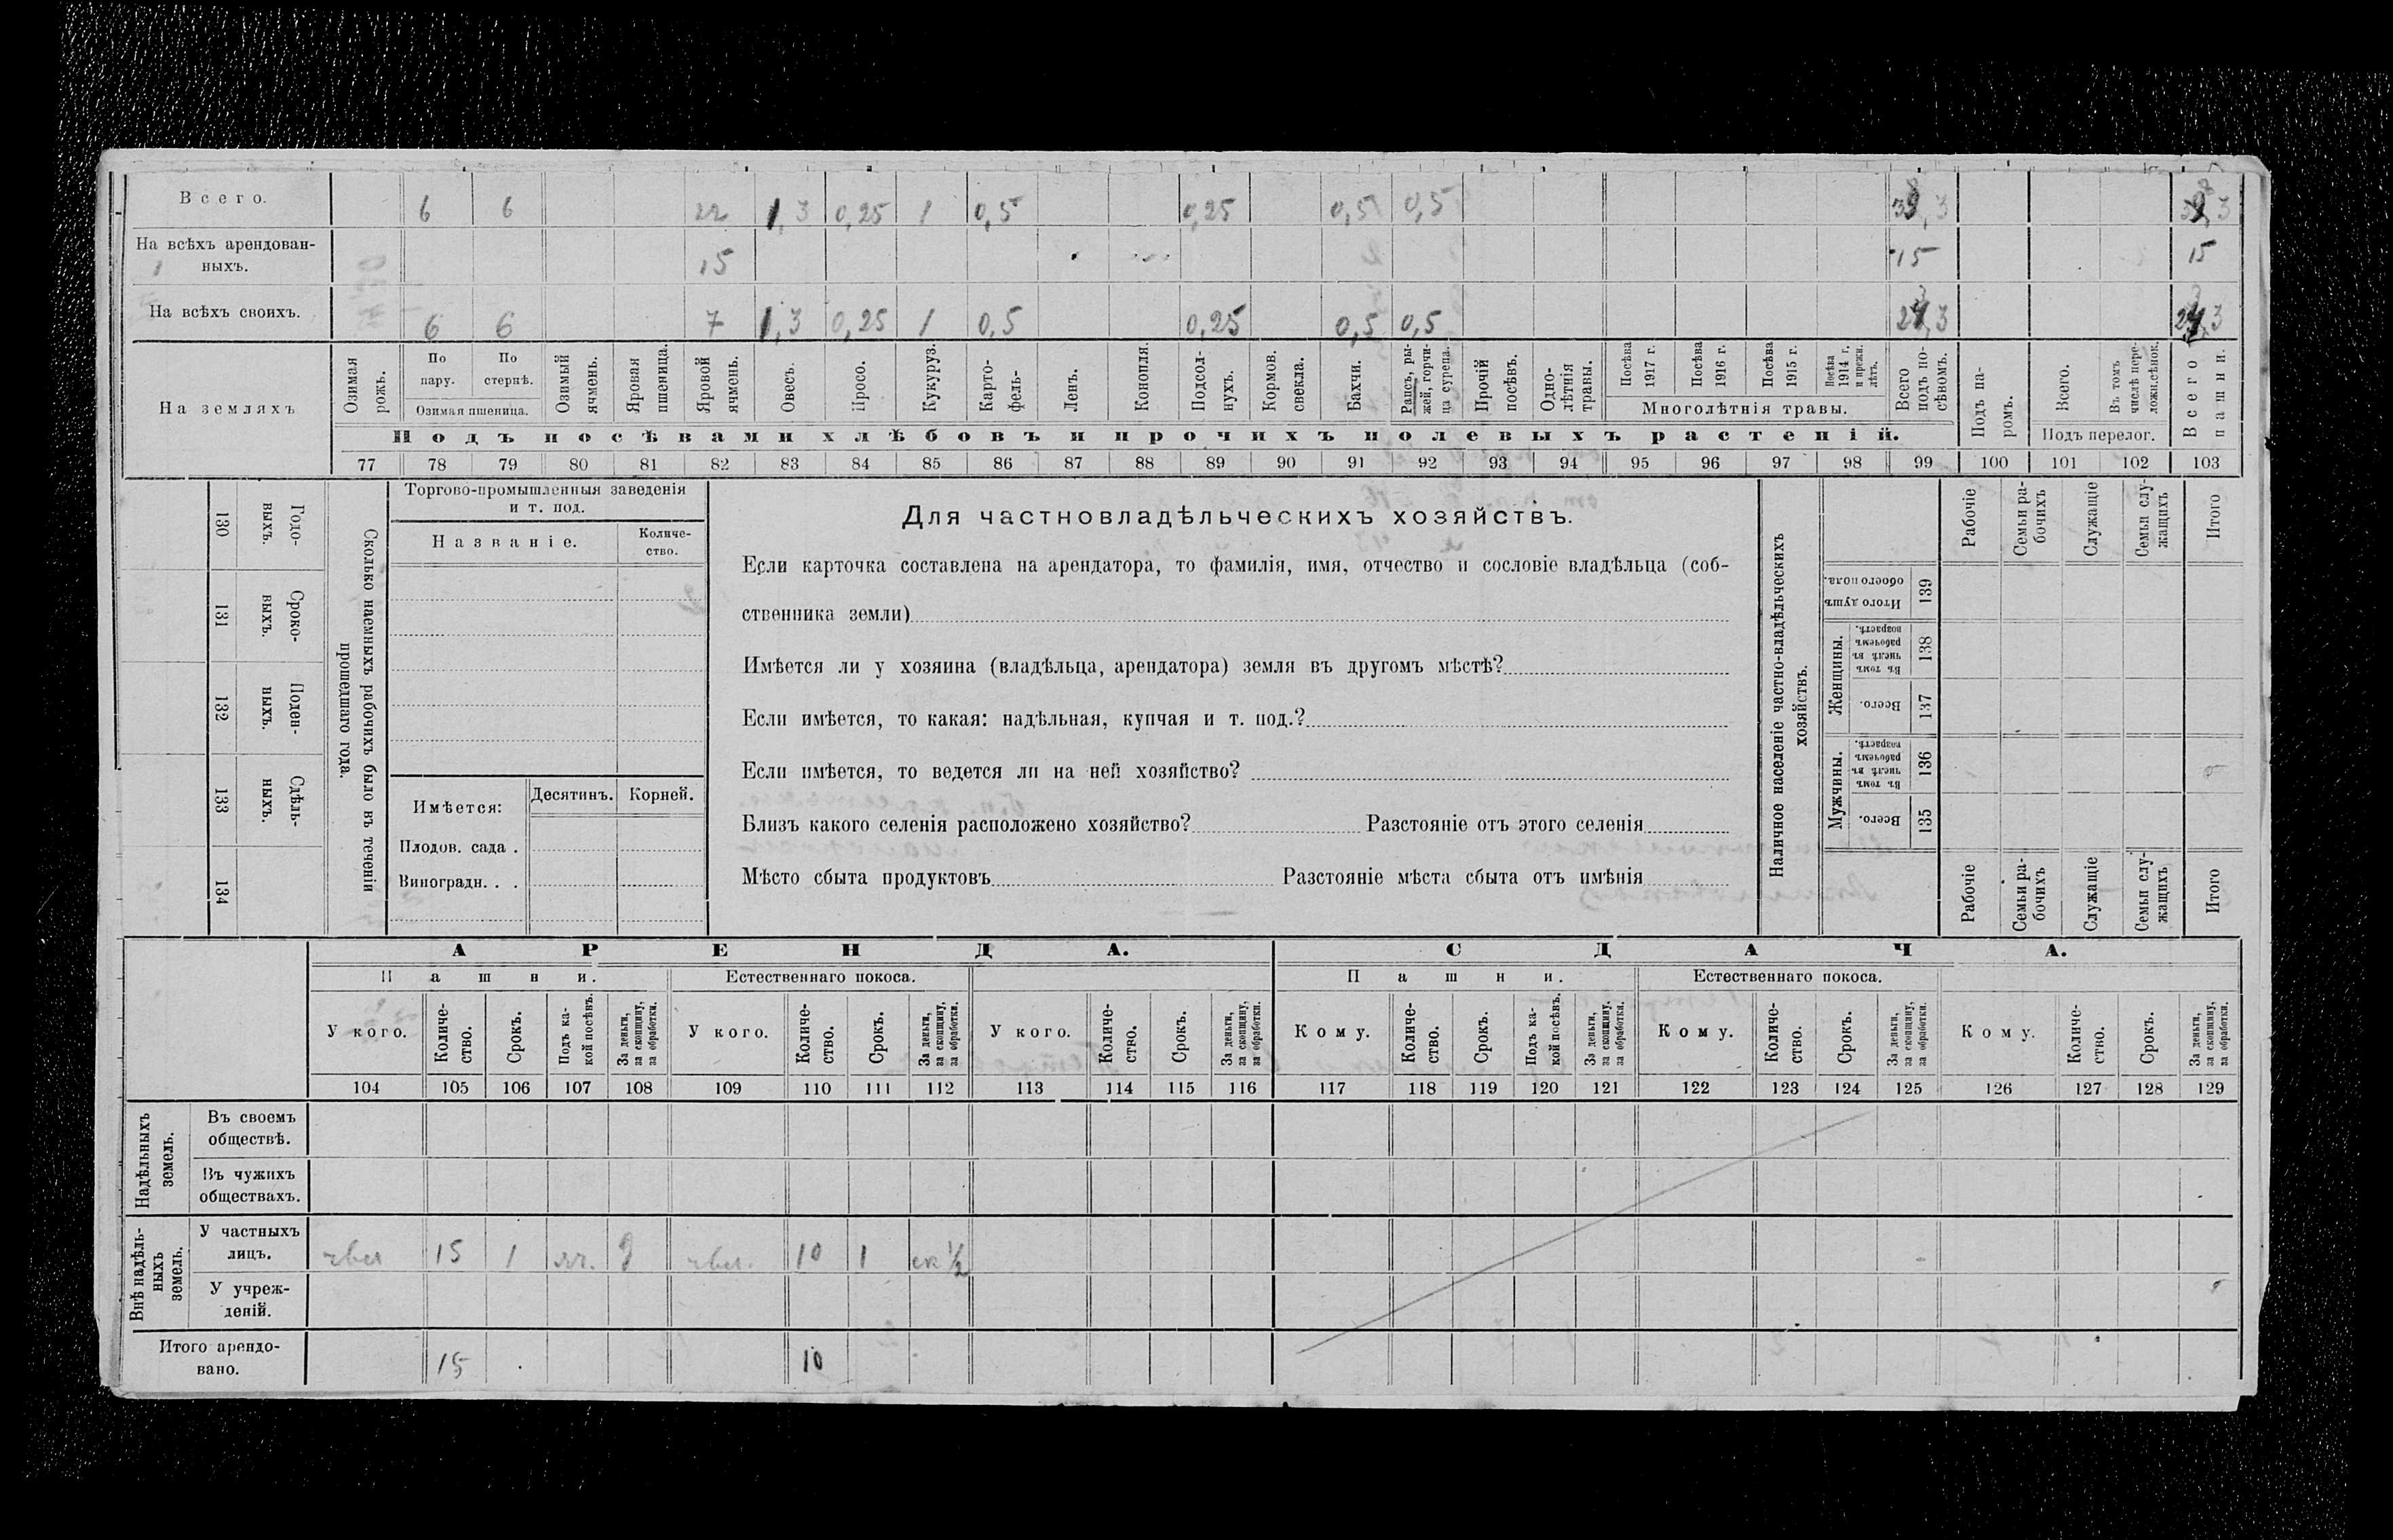 Всего. 6 6 22 1,3 0,25 1 0,5 0,25 0,5 0,5 38,3 38,3
На всѣхъ арендован-
ныхъ. 15 15 15
На всѣхъ своихъ. 6 6 7 1,3 0,25 1 0,5 0,25 0,5 0,5 23,3 23,3
На земляхъ
Озимая рожь.
По пару.
По стернѣ.
Озимая пшеница.
Озимый ячмень.
Яровая пшеница.
Яровой ячмень.
Овесъ.
Просо.
Кукуруз.
Карто-
фель-
Ленъ.
Конопля.
Подсол-
нухъ.
Кормов. свекла.
Бахчи.
Рапсъ, ры-
жей, горчи-
ца сурепа.
Прочій посѣвъ.
Одно-
лѣтнія
травы.
Посѣва 1917 г.
Посѣва 1916 г.
Посѣва 1915 г.
Посѣва 1914 г. и прежн. лѣтъ.
Многолѣтнія травы.
Всего подъ по-
сѣвомъ.
Подъ па-
ромъ.
Всего.
Въ томъ числѣ пере-
ложн.сѣнок.
Подъ перелог.
Всего пашни.
Подъ посѣвами хлѣбовъ и прочихъ полевыхъ растеній.
77 78 79 80 81 82 83 84 85 86 87 88 89 90 91 92 93 94 95 96 97 98 99 100 101 102 103
130 Годо-
выхъ.
131 Сроко-
выхъ.
132 Поден-
ныхъ.
133 Сдѣль-
ныхъ.
134
Сколько наемныхъ рабочихъ было въ теченіи
прошедшаго года.
Торгово-промышленныя заведенія
и т. под.
Названіе. Количе-
ство.
Имѣется: Десятинъ. Корней.
Плодов. сада .
Виноградн. . .
Для частновладѣльческихъ хозяйствъ.
Если карточка составлена на арендатора, то фамилія, имя, отчество и сословіе владѣльца (соб-
ственника земли)
Имѣется ли у хозяина (владѣльца, арендатора) земля въ другомъ мѣстѣ?
Если имѣется, то какая: надѣльная, купчая и т. под.?
Если имѣется, то ведется ли на ней хозяйство?
Близъ какого селенія расположено хозяйство? Разстояніе отъ этого селенія
Мѣсто сбыта продуктовъ Разстояніе мѣста сбыта отъ имѣнія
Наличное населеніе частно-владѣльческихъ
хозяйствъ.
Рабочіе
Семьи ра-
бочихъ
Служащіе
Семьи слу-
жащихъ
Итого
Итого душъ обоего пола. 139
Женщины.
Въ томъ числѣ въ рабочемъ возрастѣ. 138
Всего. 137
Мужчины.
Въ томъ числѣ въ рабочемъ возрастѣ. 136
Всего. 135
Рабочіе
Семьи ра-
бочихъ
Служащіе
Семьи слу-
жащихъ
Итого
АРЕНДА. СДАЧА.
Пашни. Естественнаго покоса. Пашни. Естественнаго покоса.
У кого. Количе-
ство. Срокъ. Подъ ка-
кой посѣвъ. За деньги, за скопщину, за обработки.
У кого. Количе-
ство. Срокъ. За деньги, за скопщину, за обработки.
У кого. Количе-
ство. Срокъ. За деньги, за скопщину, за обработки.
Кому. Количе-
ство. Срокъ. Подъ ка-
кой посѣвъ. За деньги, за скопщину, за обработки.
Кому. Количе-
ство. Срокъ. За деньги, за скопщину, за обработки.
Кому. Количе-
ство. Срокъ. За деньги, за скопщину, за обработки.
104 105 106 107 108 109 110 111 112 113 114 115 116 117 118 119 120 121 122 123 124 125 126 127 128 129
Надѣльныхъ
земель.
Въ своемъ
обществѣ.
Въ чужихъ
обществахъ.
Внѣ надѣль-
ныхъ
земель.
У частныхъ
лицъ. 15 1 яч. 10 1 ск ½
У учреж-
деній.
Итого арендо-
вано. 15 10